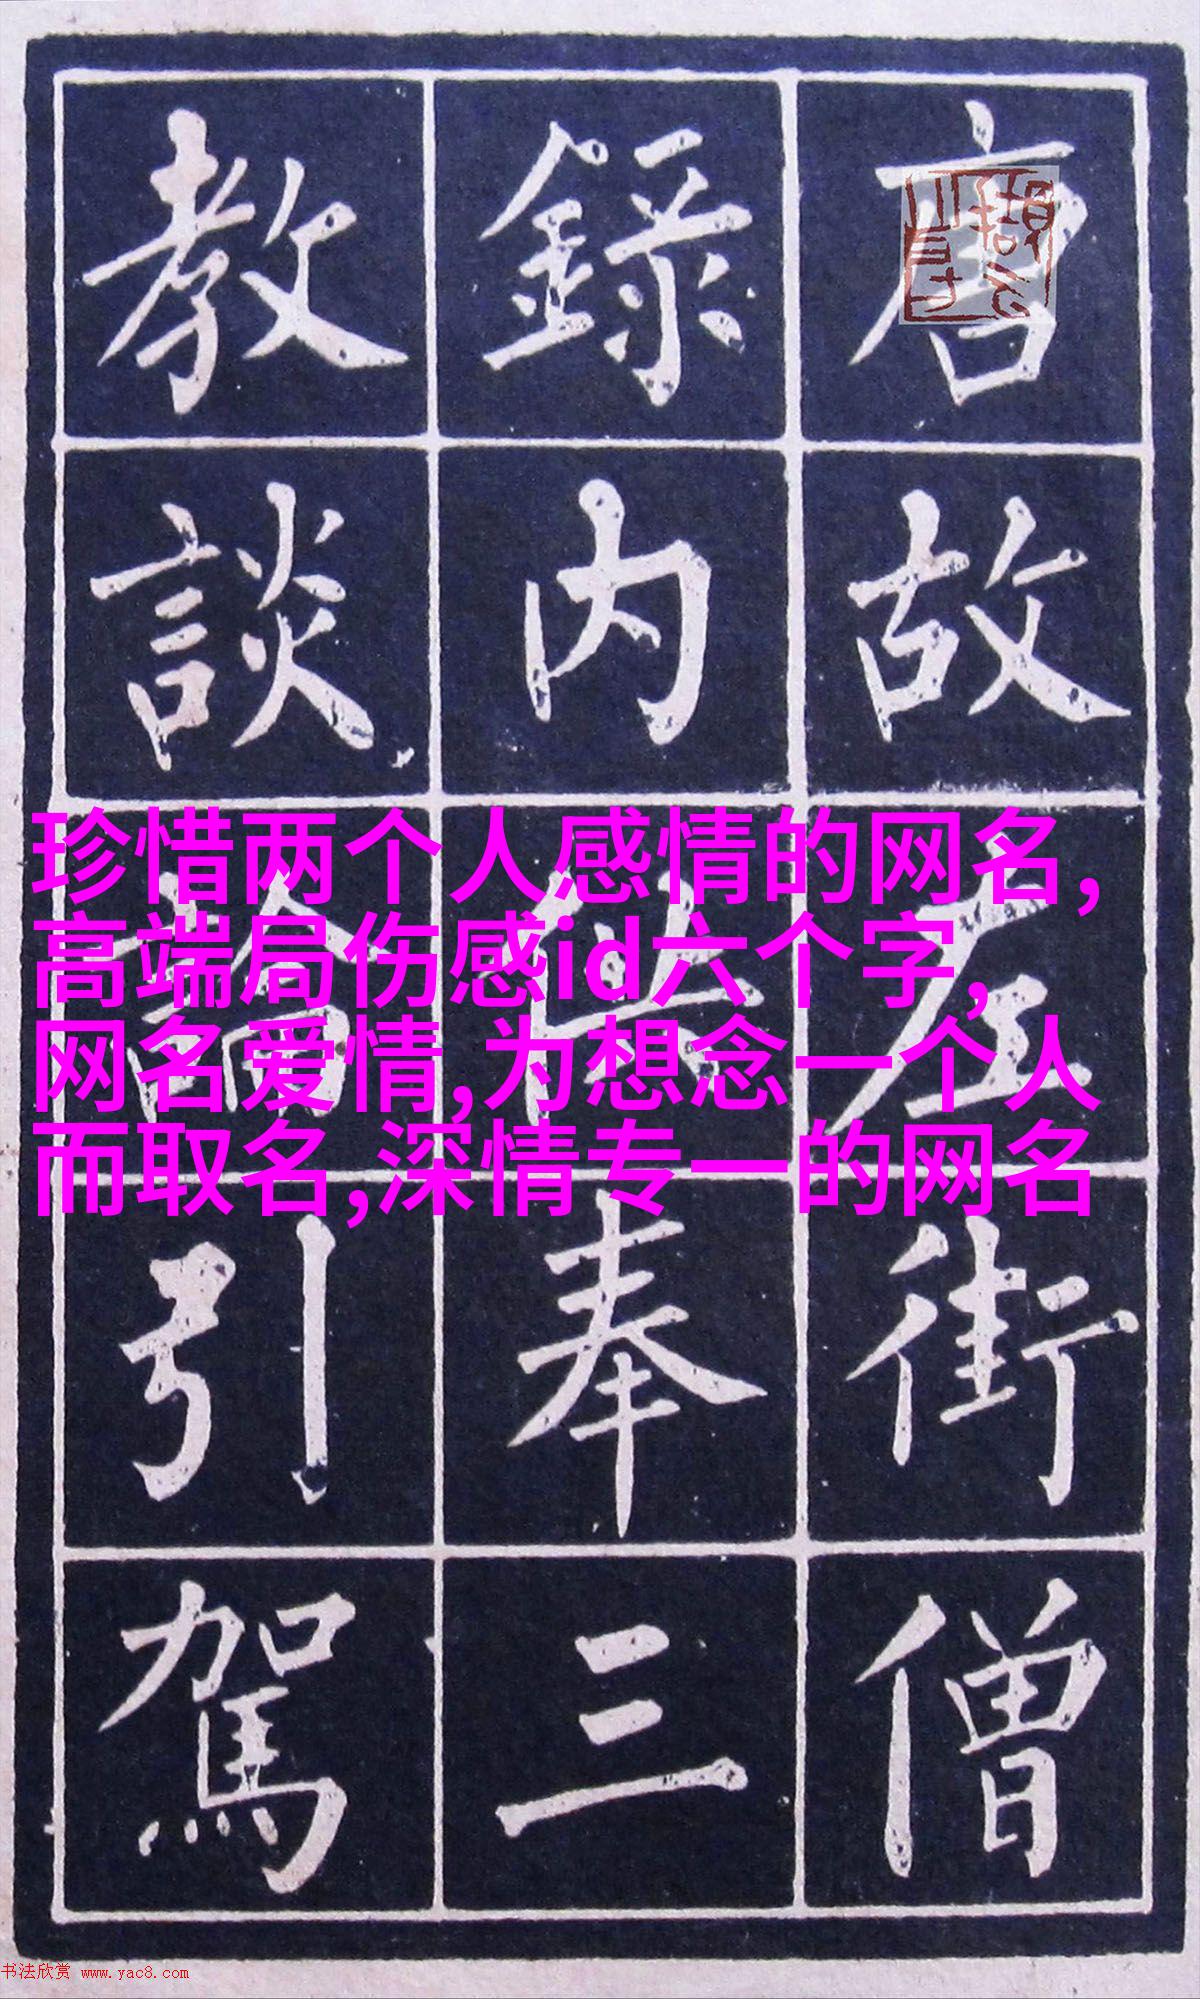 唐故左街僧
錄内供奉三
教談論引駕
珍惜两个人感情的网名,
高端局伤感id六个字,
网名爱情,为想念一个人
而取名,深情专一的网名
书法欣赏 www.yac8.com